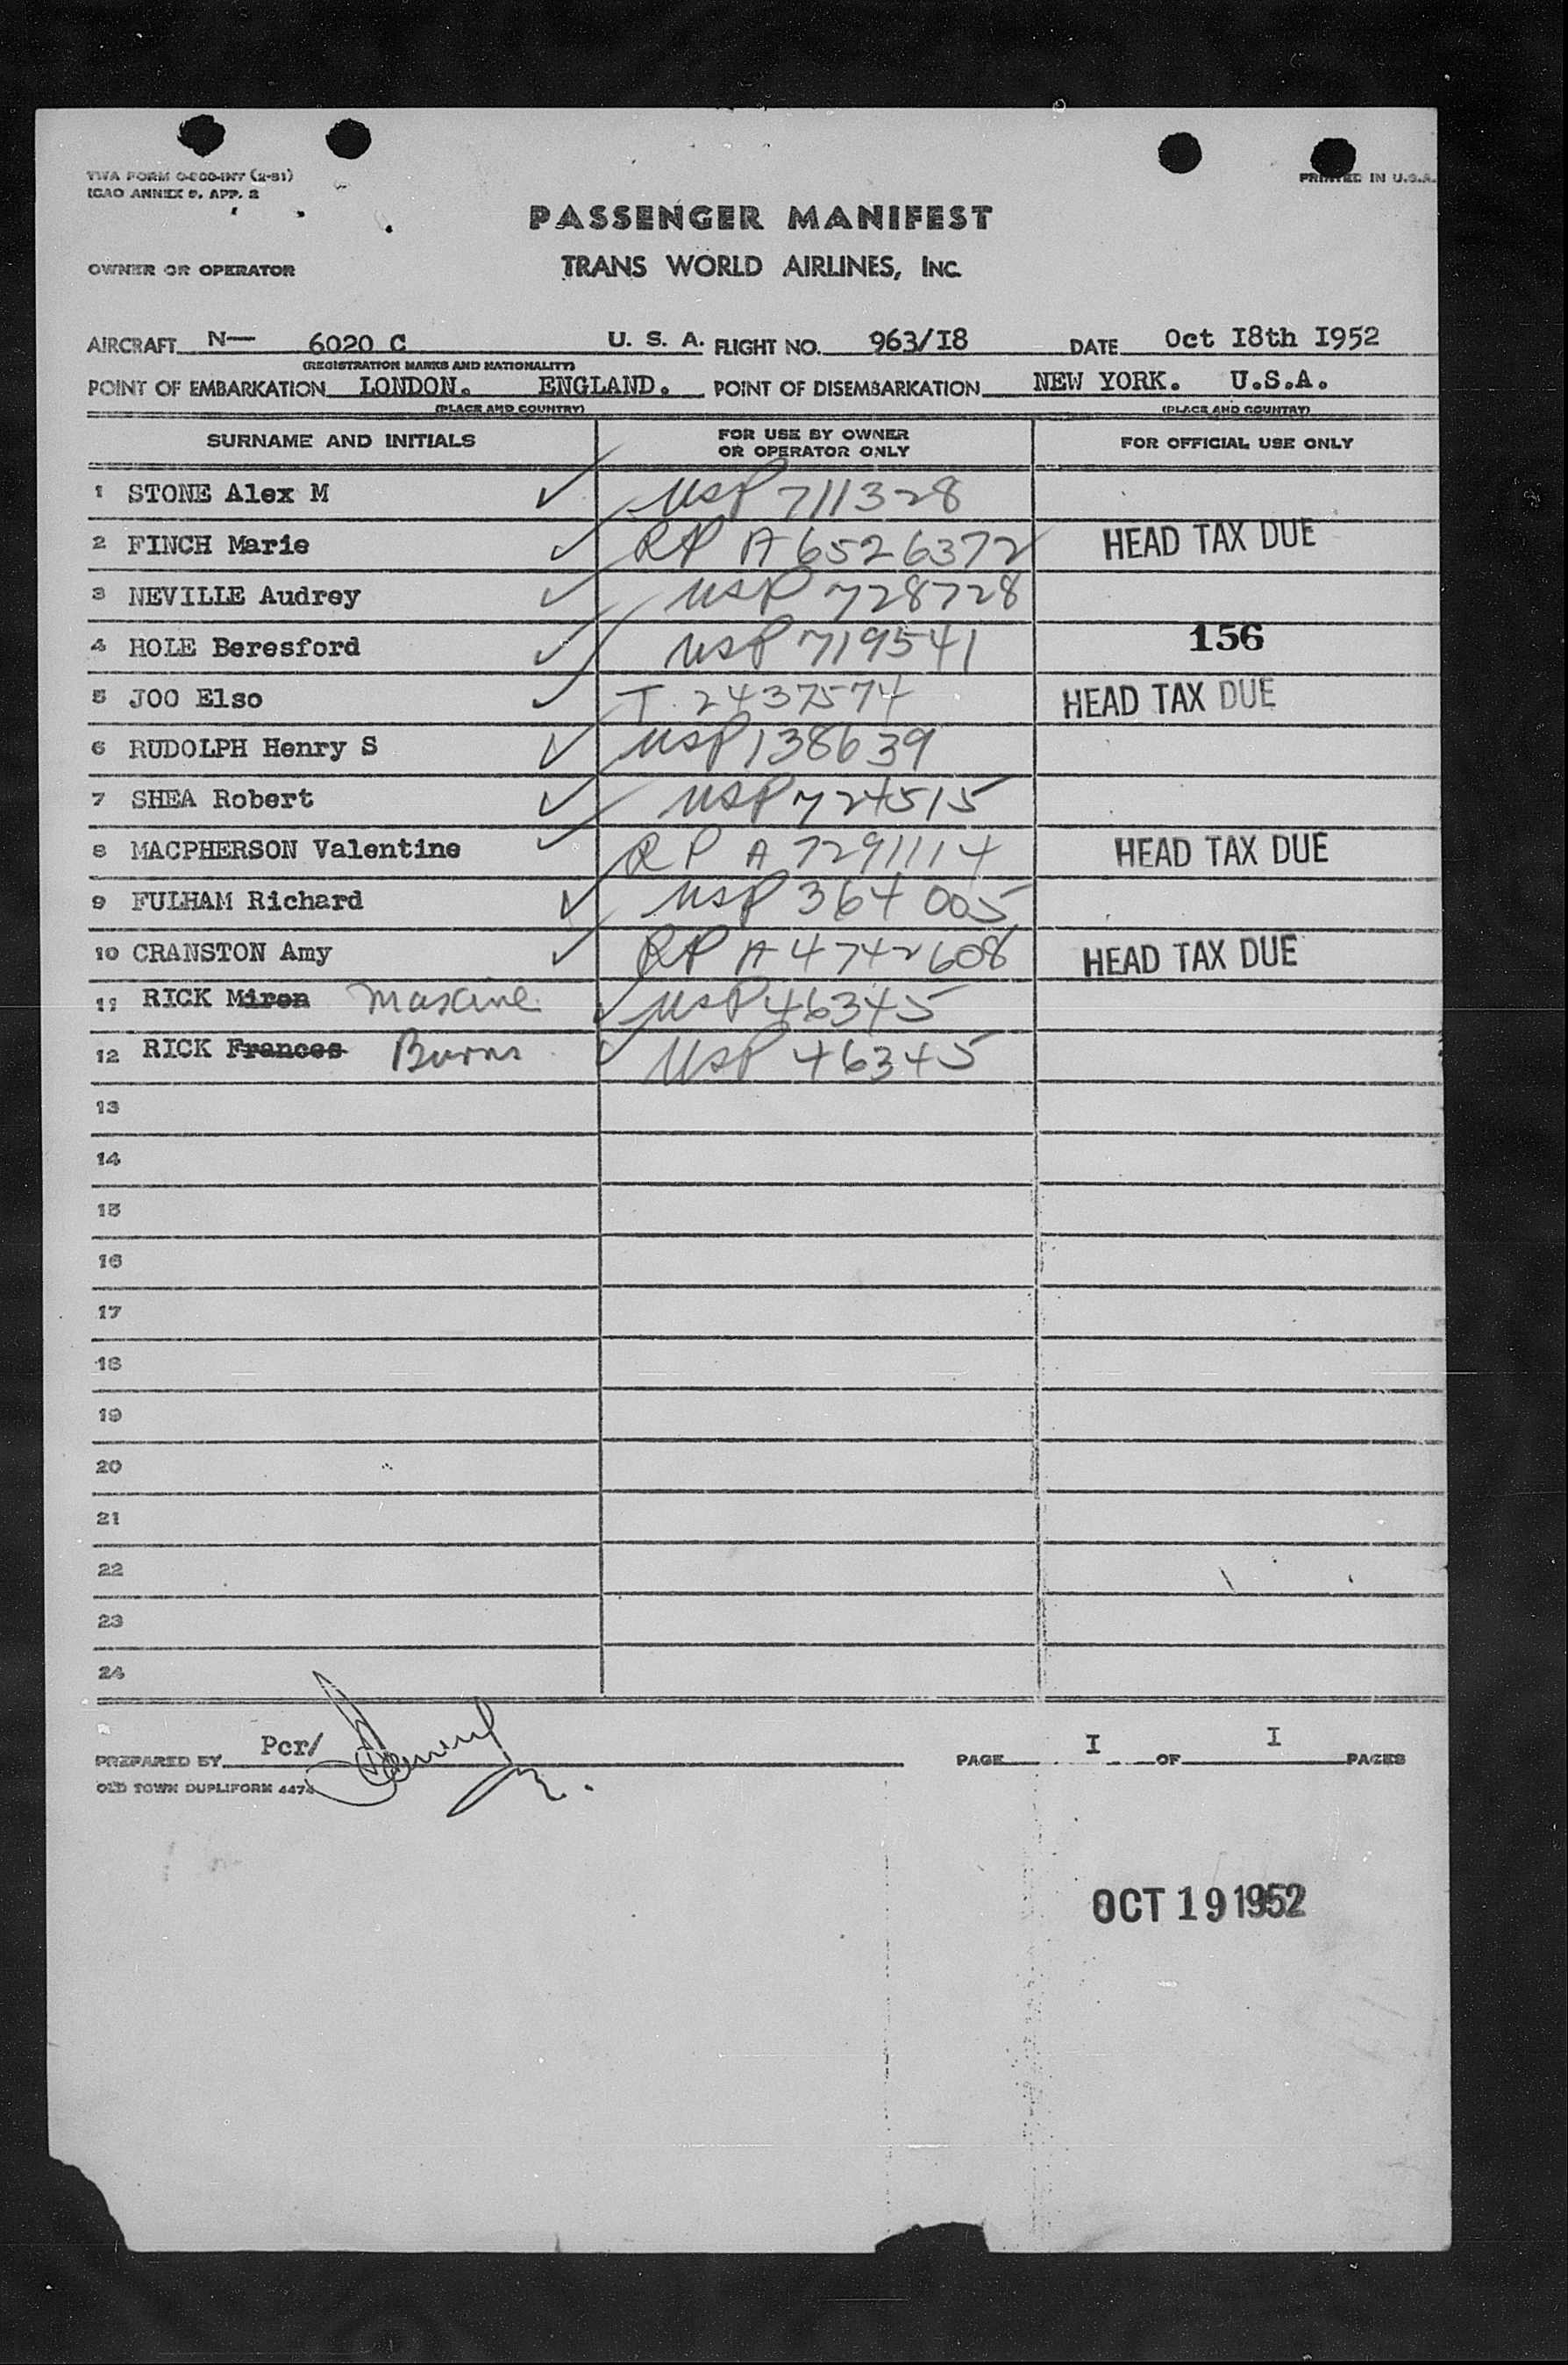 TWA FORM O-800-INT (2-51)
ICAO ANNEX 9, APP. 2
PRINTED IN U.S.A.
PASSENGER MANIFEST
OWNER OR OPERATOR TRANS WORLD AIRLINES, INC.
AIRCRAFT N— 6020 C U. S. A. FLIGHT NO. 963/I8 DATE Oct I8th I952
(REGISTRATION MARKS AND NATIONALITY)
POINT OF EMBARKATION LONDON. ENGLAND. POINT OF DISEMBARKATION NEW YORK. U.S.A.
(PLACE AND COUNTRY) (PLACE AND COUNTRY)
SURNAME AND INITIALS FOR USE BY OWNER OR OPERATOR ONLY FOR OFFICIAL USE ONLY
1 STONE Alex M ✓ USP 711328
2 FINCH Marie ✓ RP A6526372 HEAD TAX DUE
3 NEVILLE Audrey ✓ USP 728728
4 HOLE Beresford ✓ USP 719541 156
5 JOO Elso ✓ T. 2437574 HEAD TAX DUE
6 RUDOLPH Henry S ✓ USP 138639
7 SHEA Robert ✓ USP 724515
8 MACPHERSON Valentine ✓ RP A 7291114 HEAD TAX DUE
9 FULHAM Richard ✓ USP 364005
10 CRANSTON Amy ✓ RP A 4742608 HEAD TAX DUE
11 RICK Miren Maxine ✓ USP 46345
12 RICK Frances Burns ✓ USP 46345
13
14
15
16
17
18
19
20
21
22
23
24
PREPARED BY Pcr/ PAGE I OF I PAGES
OLD TOWN DUPLIFORM 4474
OCT 19 1952